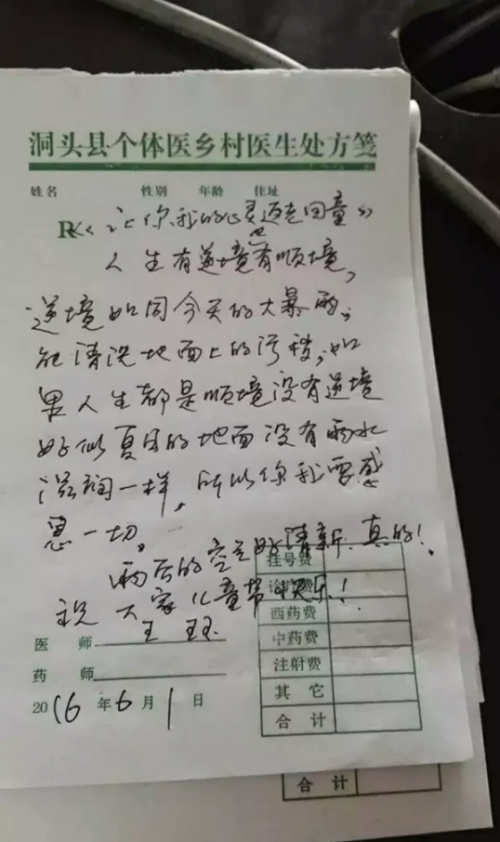 洞头县个体医乡村医生处方笺
姓名 性别 年龄 住址
R《让你我的心灵返老回童》
人生有逆境也有顺境,
逆境如同今天的大暴雨,
能清洗地面上的污秽,如
果人生都是顺境没有逆境
好似夏日的地面没有雨水
滋润一样,所以你我要感
恩一切。
雨后的空气好清新,真的!
祝大家儿童节快乐!
王
挂号费
诊疗费
西药费
中药费
注射费
其它
合计
医师
药师
2016年6月1日
合计